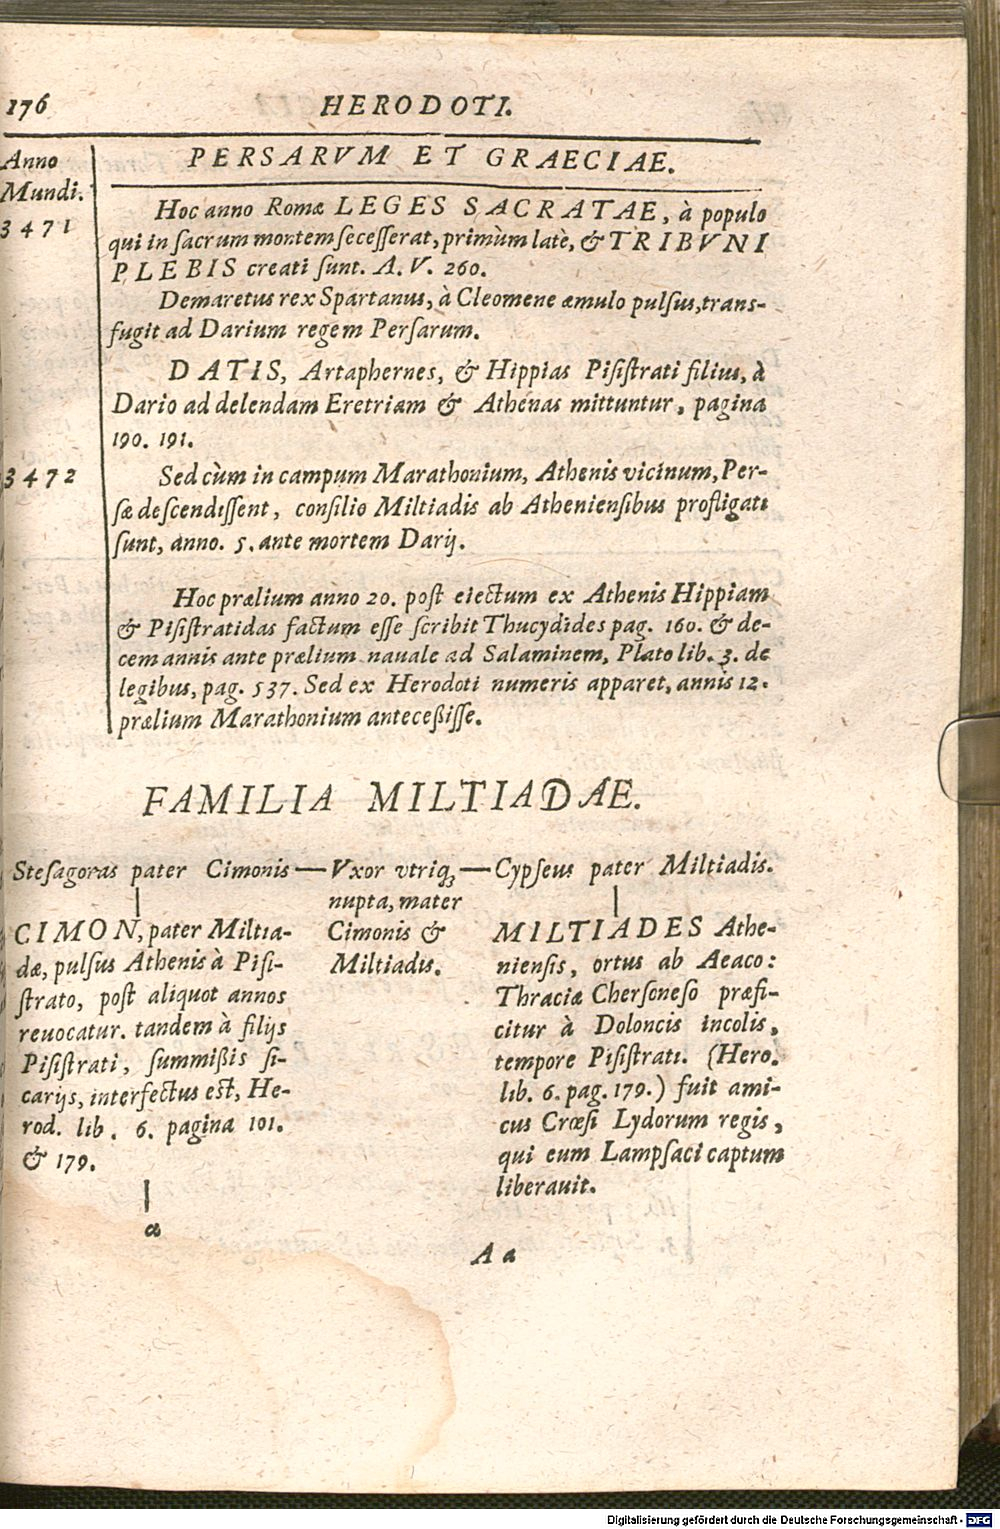 176 HERODOTI.
Anno PERSARVM ET GRAECIAE.
Mundi.
3471 Hoc anno Romæ LEGES SACRATAE, à populo
qui in ſacrum montem ſeceſſerat, primùm latè, & TRIBVNI
PLEBIS creati ſunt. A. V. 260.
Demaretus rex Spartanus, à Cleomene æmulo pulſus, trans-
fugit ad Darium regem Perſarum.
DATIS, Artaphernes, & Hippias Piſiſtrati filius, à
Dario ad delendam Eretriam & Athenas mittuntur, pagina
190. 191.
3472 Sed cùm in campum Marathonium, Athenis vicinum, Per-
ſæ deſcendiſſent, conſilio Miltiadis ab Athenienſibus profligati
ſunt, anno. 5. ante mortem Darij.
Hoc prælium anno 20. poſt eiectum ex Athenis Hippiam
& Piſiſtratidas factum eſſe ſcribit Thucydides pag. 160. & de-
cem annis ante prælium nauale ad Salaminem, Plato lib. 3. de
legibus, pag. 537. Sed ex Herodoti numeris apparet, annis 12.
prælium Marathonium anteceßiſſe.
FAMILIA MILTIADAE.
Steſagoras pater Cimonis — Vxor vtriq; — Cypſeus pater Miltiadis.
nupta, mater
Cimonis &
Miltiadis.
CIMON, pater Miltia-
dæ, pulſus Athenis à Piſi-
ſtrato, poſt aliquot annos
reuocatur. tandem à filijs
Piſiſtrati, ſummißis ſi-
carijs, interfectus eſt, He-
rod. lib. 6. pagina 101.
& 179.
a
MILTIADES Athe-
nienſis, ortus ab Aeaco:
Thraciæ Cherſoneſo præfi-
citur à Doloncis incolis,
tempore Piſiſtrati. (Hero.
lib. 6. pag. 179.) fuit ami-
cus Crœſi Lydorum regis,
qui eum Lampſaci captum
liberauit.
A a
Digitalisierung gefördert durch die Deutsche Forschungsgemeinschaft - DFG